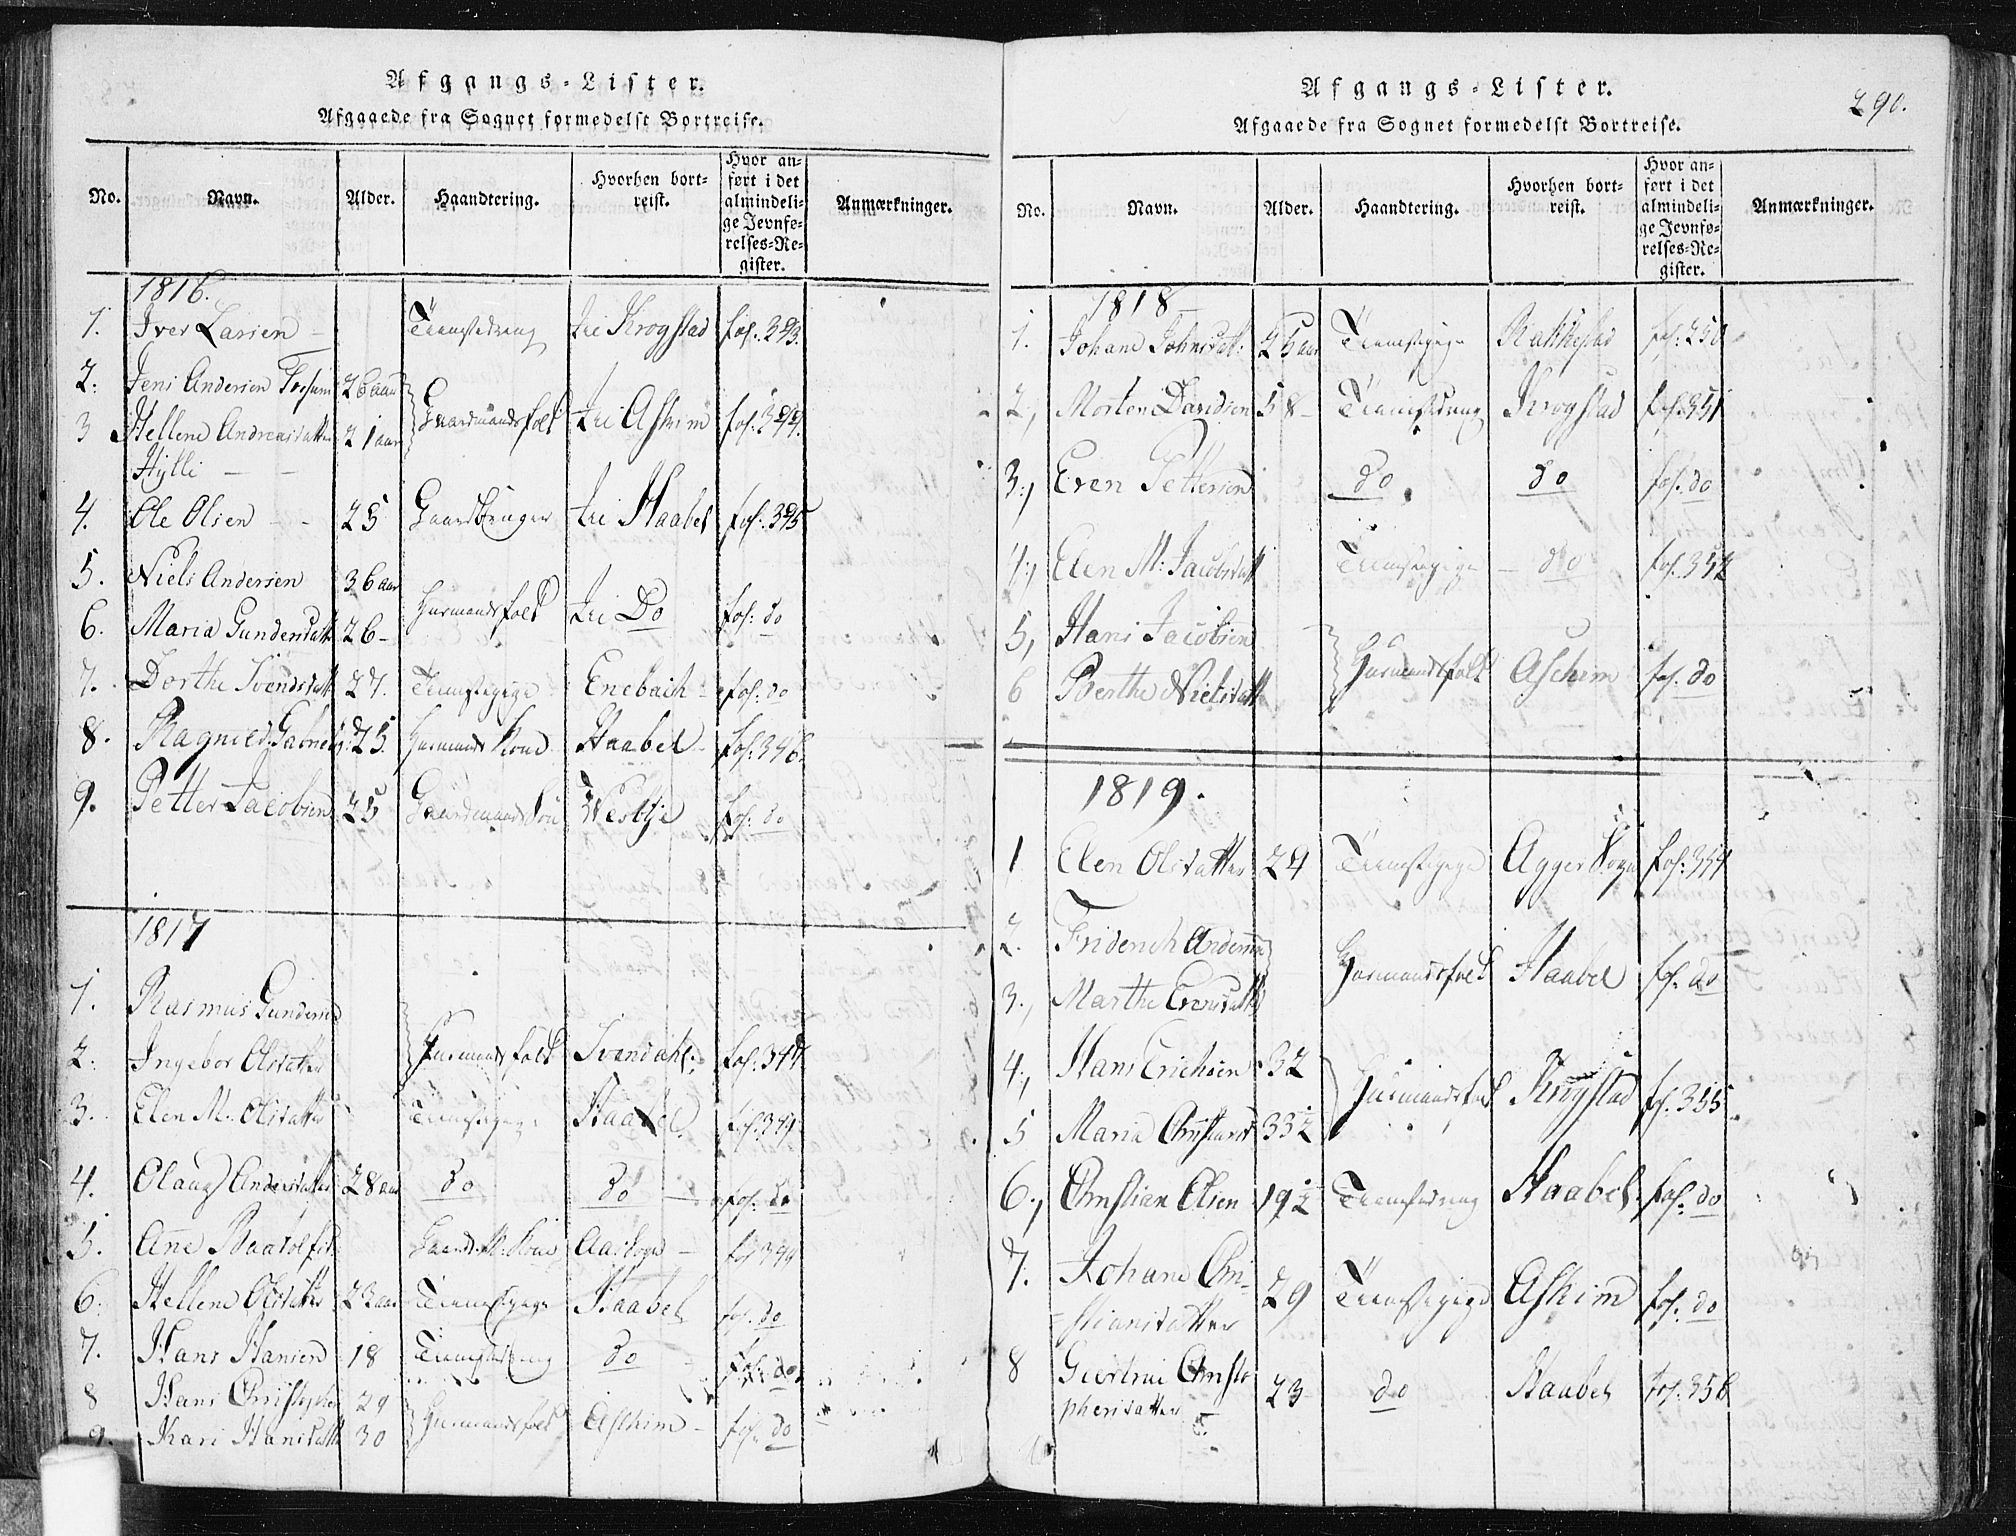 Afgangs-Lister.
Afgaaede fra Sognet formedelst Bortreise.
No. Navn. Alder. Haandtering. Hvorhen bortreist. Hvor anført i det almindelige Jevnførelses-Register. Anmærkninger.
1816.
1. Iver Larsen – Tienistedreng til Krogstad fol. 393.
2. Jens Andersen 26 aar Gaardmandsfolk til Askim fol. 394.
3 Hellene Andreasdatter 21 aar
Hylli
4. Ole Olsen 25 Gaardbruger til Haabel fol. 395
5. Niels Andersen 36 aar Huusmandsfolk til Do fol. do
6. Maria Gundersdatt 26
7. Dorthe Svendsdatt 27. Tienistepige Enebach fol. do
8. Ragnild 25. Huusmands Kone Haabel fol. 346.
9. Petter Jacobsen 25 Gaardmands Søn Westbye fol. do
1817
1. Rasmus Gundersen
2. Ingebor Olsdatter Huusmands folk Svendahl. fol. 347
3. Elen M. Olsdatter Tienistepige Haabel. fol. 349
4. Andersdatter 28 aar do do fol. do
5. Ane Gaard M. Kone Aas Sogn fol. 349
6. Hellene Olsdatter 23 aar Tienistepige Haabel fol. do
7. Hans Hansen 18 Tienistedreng do fol. do
8 Hans Christopher 29 Huusmandsfolk Aschim fol. do
9. Kari Hansdatt 30
Afgangs-Lister.
290.
Afgaaede fra Sognet formedelst Bortreise.
No. Navn. Alder. Haandtering. Hvorhen bortreist. Hvor anført i det almindelige Jevnførelses-Register. Anmærkninger.
1818
1. Johane Johnsdat: 25 aar Tienistepige Rakkestad fol. 250
2, Morten Davidsen 58 Tienistedreng Krogstad fol. 351
3., Even Pettersen do do fol. do
4., Elen M: Jacobsdatt Tienistepige do fol. 352
5, Hans Jacobsen Huusmandsfolk Aschim fol. do
6 Berthe Nielsdatt
1819.
1 Elen Olsdatter 24 Tienistepige Agger Sogn fol. 354
2. Friderich Andersen Huusmandsfolk Haabel fol. do
3., Marthe Evensdatt
4., Hans Erichsen 32 Huusmandsfolk Krogstad fol. 355
5 Maria Christians 33½
6., Christian Olsen 19½ Tienistedreng Haabel fol. do
7. Johane Chri-
stiansdatter 29 Tienistepige Askim fol. do
8 Giertrue Christo
phersdatter 23 do Haabel fol. 356